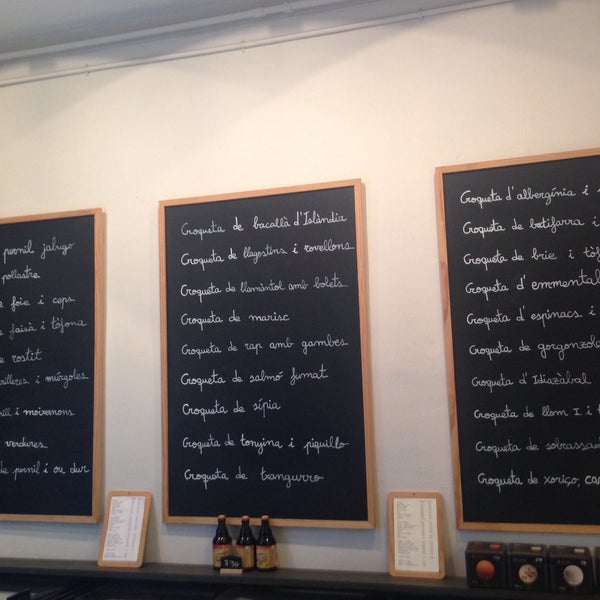 pernil jabugo
pollastre
foie i ceps
faisà i tòfona
rostit
i múrgoles
i moixernons
verdures
de pernil i ou dur
Croqueta de bacallà d'Islàndia
Croqueta de llagostins i rovellons
Croqueta de llamàntol amb bolets
Croqueta de marisc
Croqueta de rap amb gambes
Croqueta de salmó fumat
Croqueta de sípia
Croqueta de tonyina i piquillo
Croqueta de txangurro
Croqueta d'albergínia i
Croqueta de botifarra i
Croqueta de brie i
Croqueta d'emmental
Croqueta d'espinacs i
Croqueta de gorgonzola
Croqueta d'Idiazàbal
Croqueta de llom I. i
Croqueta de
Croqueta de xoriço,
2'50